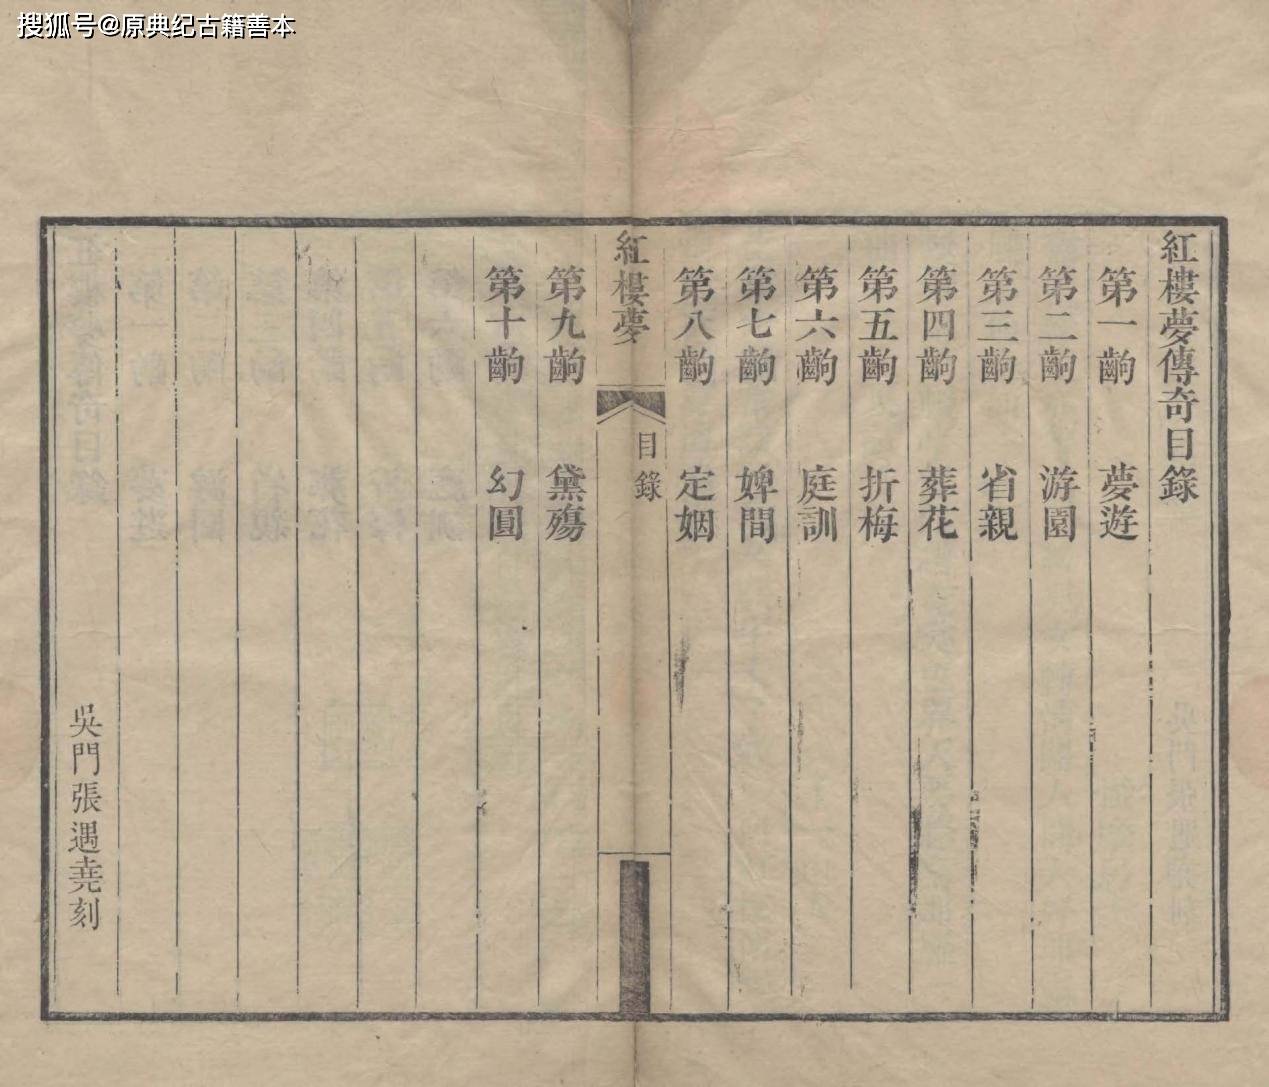 搜狐号@原典纪古籍善本
紅樓夢傳奇目錄
第一齣 夢遊
第二齣 游園
第三齣 省親
第四齣 葬花
第五齣 折梅
第六齣 庭訓
第七齣 婢間
第八齣 定姻
紅樓夢 目錄
第九齣 黛殤
第十齣 幻圓
吳門張遇堯刻